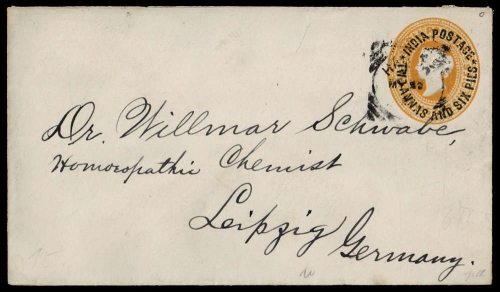 INDIA POSTAGE
TWO ANNAS AND SIX PIES
Dr. Willmar Schwabe,
Homoeopathic Chemist
Leipzig
Germany.